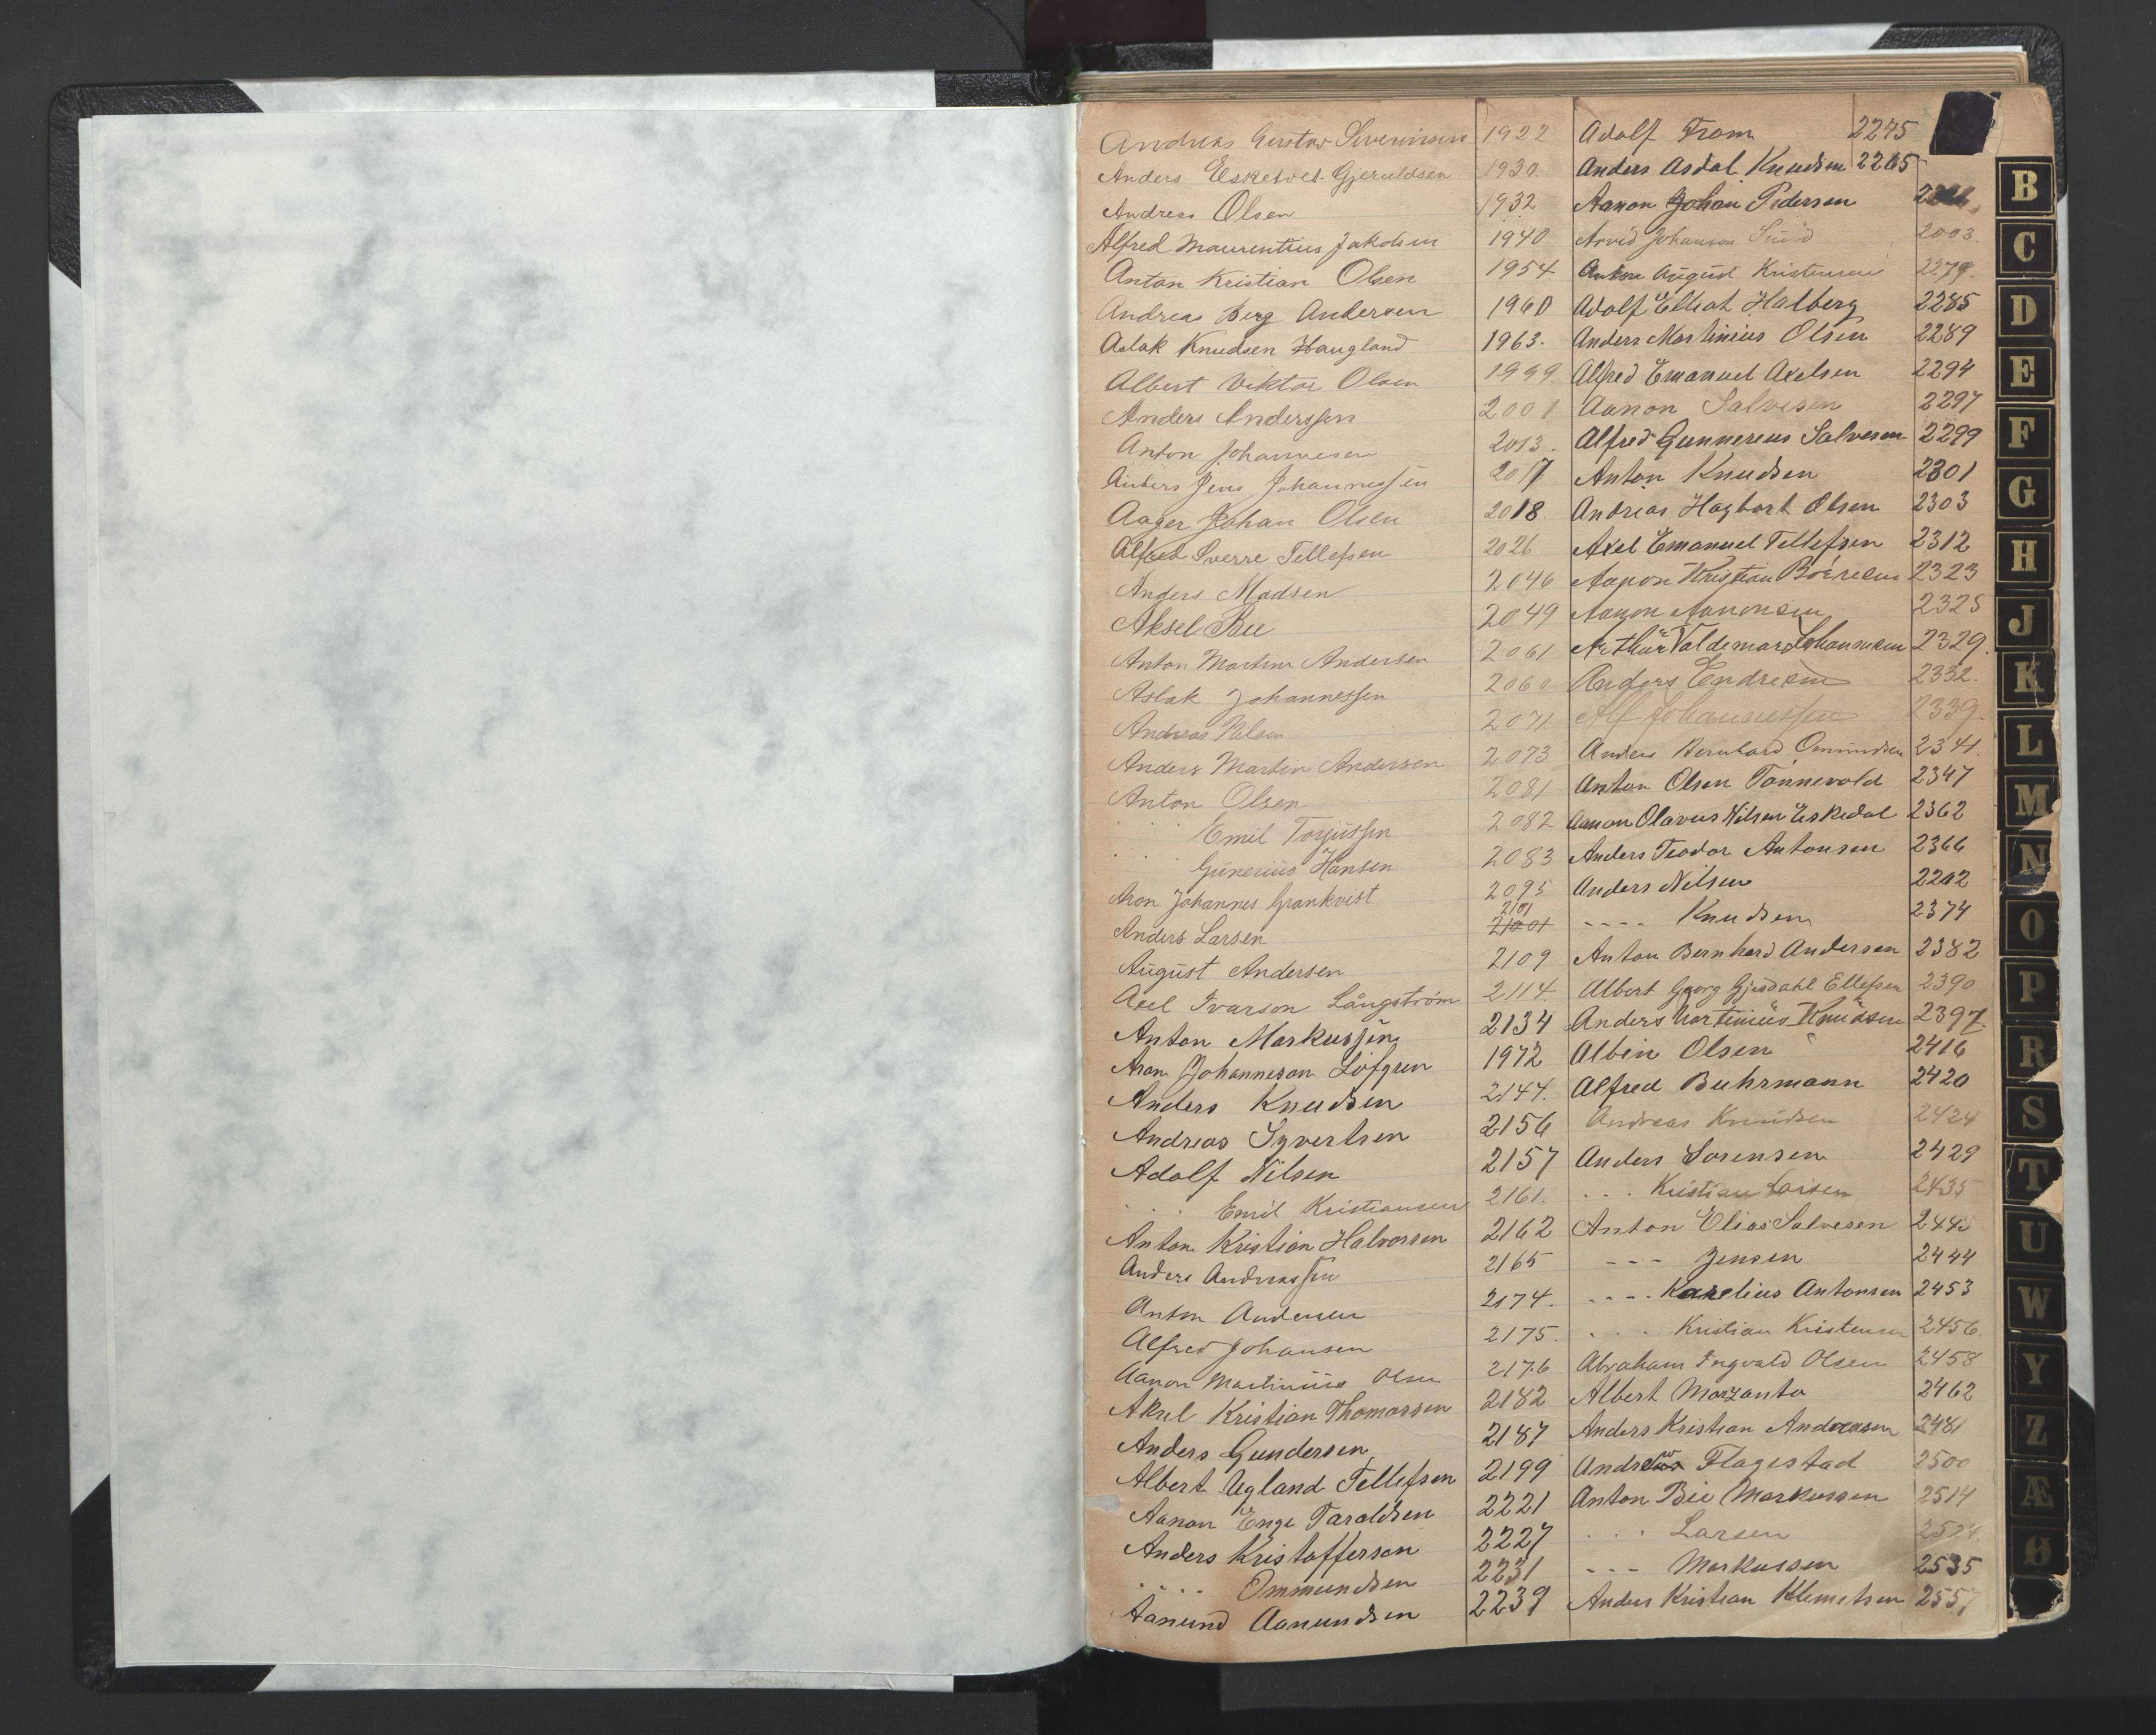 Andreas Gustav Severinsen 1922
Anders Eskedal Gjeruldsen 1930.
Andreas Olsen 1932
Alfred Maurentius Jakobsen 1940
Anton Kristian Olsen 1954
Andreas Berg Andersen 1960
Aslak Knudsen Haugland 1963.
Albert Viktor Olsen 1999
Anders Anderssen 2001
Anton Johannesen 2013.
Anders Jens Johannessen 2017
Aager Johan Olsen 2018
Alfred Sverre Tellefsen 2026
Anders Madsen 2046
Aksel Bie 2049
Anton Martin Andersen 2061
Aslak Johannessen 2060
Andreas Nilsen 2071
Anders Martin Andersen 2073
Anton Olsen 2081
. . . Emil Torjussen 2082
. . . Gunerius Hansen 2083
Aron Johannes Grankvist 2095
Anders Larsen 2101
August Andersen 2109
Axel Ivarson Långström 2114.
Anton Markussen 2134
Aron Johanneson Löfgren 1972
Anders Knudsen 2144.
Andreas Syvertsen 2156
Adolf Nilsen 2157
. . . Emil Kristiansen 2161.
Anton Kristian Halvorsen 2162
Anders Andreassen 2165
Anton Andersen 2174.
Alfred Johansen 2175.
Aanon Martinius Olsen 2176
Aksel Kristian Thomassen 2182
Anders Gundersen 2187
Albert Ugland Tellefsen 2199
Aanon Enge Taraldsen 2221
Anders Kristofferson 2227
. . . . Ommundsen 2231
Aanund Aanundsen 2239
Adolf From 2275
Anders Asdal Knudsen 2265
Aanon Johan Pedersen
Arvid Johanson 2003.
Anton August Kristensen 2279.
Adolf Elliot Halberg 2285
Anders Martinius Olsen 2289
Alfred Emanuel Axelsen 2294
Aanon Salvesen 2297
Alfred Gunnereus Salvesen 2299
Anton Knudsen 2301
Andreas Hagbart Olsen 2303
Axel Emanuel Tellefsen 2312
Aanon Kristian Börresen 2323
Aanon Aanonsen 2325
Arthur Valdemar Johannesen 2329.
Anders Endresen 2332.
Alf Johannessen 2339.
Anders Bernhard Ommundsen 2341.
Anton Olsen Tønnevold 2347
Aanon Olavus Nilsen Eskedal 2362
Anders Teodor Antonsen 2366
Anders Nilsen 2202
- - - - Knudsen 2374
Anton Bernhard Andersen 2382
Albert Georg Gjesdahl Ellefsen 2390
Anders Martinius Knudsen 2397.
Albin Olsen 2416
Alfred Buhrmann 2420
Andreas Knudsen 2424
Anders Sorensen 2429
. . . Kristian Larsen 2435
Anton Elias Salvesen
- - - Jensen 2444
- - - - Karelius Antonsen 2453
. . . Kristian Kristensen 2456.
Abraham Ingvald Olsen 2458
Albert Morzanto 2462
Anders Kristian Andreasen 2481
Andrew Flagestad 2500
Anton Bie Markussen 2514
. . . Larsen
- - - Markussen 2535
Anders Kristian Klemetsen 2557
B
C
D
E
F
G
H
J
K
L
M
N
O
P
R
S
T
U
W
Y
Z
Æ
Ø